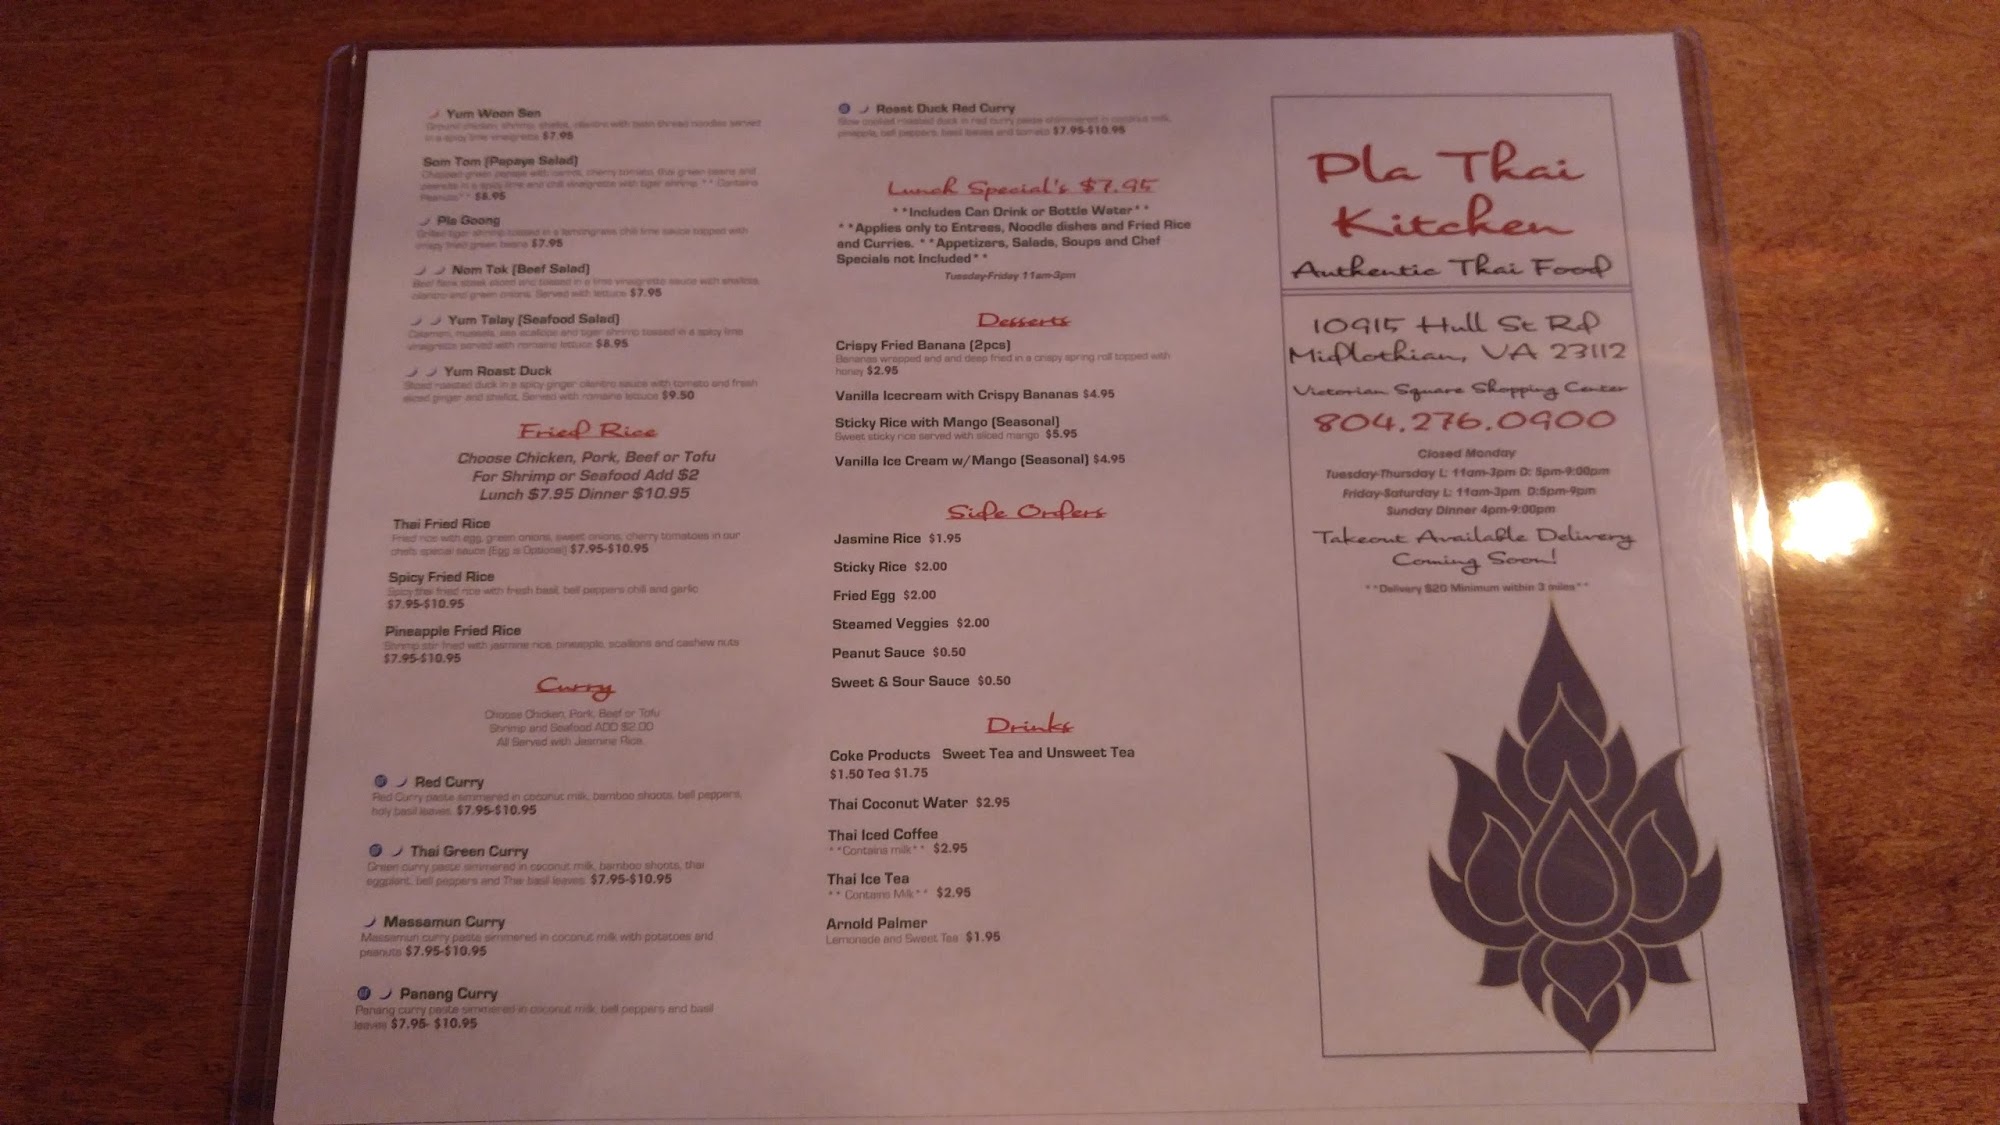 Yum Woon Sen
Ground chicken, shrimp, shallot, cilantro with bean thread noodles served
in a spicy lime vinaigrette $7.95
Som Tom (Papaya Salad)
Chopped green papaya with carrot, cherry tomato, thai green beans and
peanuts in a spicy lime and chili vinaigrette with tiger shrimp **Contains
Peanuts** $8.95
Pla Goong
Grilled tiger shrimp tossed in a lemongrass chili lime sauce topped with
crispy fried green beans $7.95
Nam Tok (Beef Salad)
Beef flank steak sliced and tossed in a lime vinaigrette sauce with shallots,
cilantro and green onions. Served with lettuce $7.95
Yum Talay (Seafood Salad)
Calamari, mussels, sea scallops and tiger shrimp tossed in a spicy lime
vinaigrette served with romaine lettuce $8.95
Yum Roast Duck
Sliced roasted duck in a spicy ginger cilantro sauce with tomato and fresh
sliced ginger and shallot. Served with romaine lettuce $9.50
Fried Rice
Choose Chicken, Pork, Beef or Tofu
For Shrimp or Seafood Add $2
Lunch $7.95 Dinner $10.95
Thai Fried Rice
Fried rice with egg, green onions, sweet onions, cherry tomatoes in our
chefs special sauce (Egg is Optional) $7.95-$10.95
Spicy Fried Rice
Spicy thai fried rice with fresh basil, bell peppers chili and garlic
$7.95-$10.95
Pineapple Fried Rice
Shrimp stir fried with jasmine rice, pineapple, scallions and cashew nuts
$7.95-$10.95
Curry
Choose Chicken, Pork, Beef or Tofu
Shrimp and Seafood ADD $2.00
All Served with Jasmine Rice
Red Curry
Red Curry paste simmered in coconut milk, bamboo shoots, bell peppers,
holy basil leaves. $7.95-$10.95
Thai Green Curry
Green curry paste simmered in coconut milk, bamboo shoots, thai
eggplant, bell peppers and Thai basil leaves $7.95-$10.95
Massamun Curry
Massamun curry paste simmered in coconut milk with potatoes and
peanuts $7.95-$10.95
Panang Curry
Panang curry paste simmered in coconut milk, bell peppers and basil
leaves $7.95- $10.95
Roast Duck Red Curry
Slow cooked roasted duck in red curry paste shimmered in coconut milk,
pineapple, bell peppers, basil leaves and tomato $7.95-$10.95
Lunch Special's $7.95
**Includes Can Drink or Bottle Water**
**Applies only to Entrees, Noodle dishes and Fried Rice
and Curries. **Appetizers, Salads, Soups and Chef
Specials not Included**
Tuesday-Friday 11am-3pm
Desserts
Crispy Fried Banana (2pcs)
Bananas wrapped and and deep fried in a crispy spring roll topped with
honey $2.95
Vanilla Icecream with Crispy Bananas $4.95
Sticky Rice with Mango (Seasonal)
Sweet sticky rice served with sliced mango $5.95
Vanilla Ice Cream w/Mango (Seasonal) $4.95
Side Orders
Jasmine Rice $1.95
Sticky Rice $2.00
Fried Egg $2.00
Steamed Veggies $2.00
Peanut Sauce $0.50
Sweet & Sour Sauce $0.50
Drinks
Coke Products Sweet Tea and Unsweet Tea
$1.50 Tea $1.75
Thai Coconut Water $2.95
Thai Iced Coffee
**Contains milk** $2.95
Thai Ice Tea
** Contains Milk** $2.95
Arnold Palmer
Lemonade and Sweet Tea $1.95
Pla Thai
Kitchen
Authentic Thai Food
10915 Hull St Rd
Midlothian, VA 23112
Victorian Square Shopping Center
804.276.0900
Closed Monday
Tuesday-Thursday L: 11am-3pm D: 5pm-9:00pm
Friday-Saturday L: 11am-3pm D:5pm-9pm
Sunday Dinner 4pm-9:00pm
Takeout Available Delivery
Coming Soon!
**Delivery $20 Minimum within 3 miles**